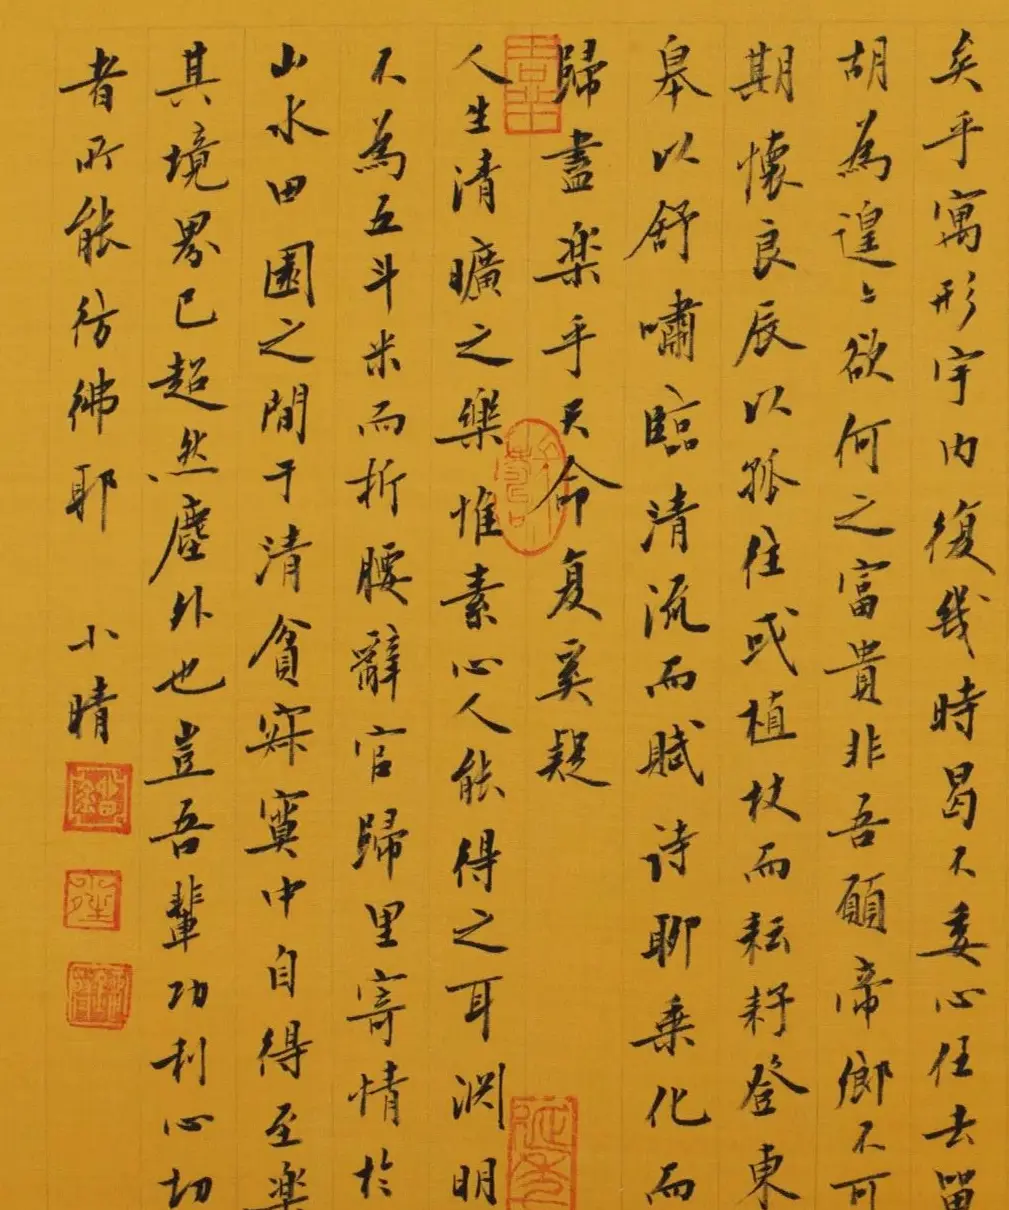 矣乎寓形宇内復幾時曷不委心任去留
胡為遑〻欲何之富貴非吾願帝鄉不可
期懷良辰以孤往或植杖而耘耔登東
皋以舒嘯臨清流而賦诗聊乘化而
歸盡楽乎天命复奚疑
人生清曠之樂惟素心人能得之耳渊明
不為五斗米而折腰辭官歸里寄情於
山水田園之間于清貧寂寞中自得至楽
其境界已超然塵外也豈吾輩功利心切
者所能彷彿耶 小晴